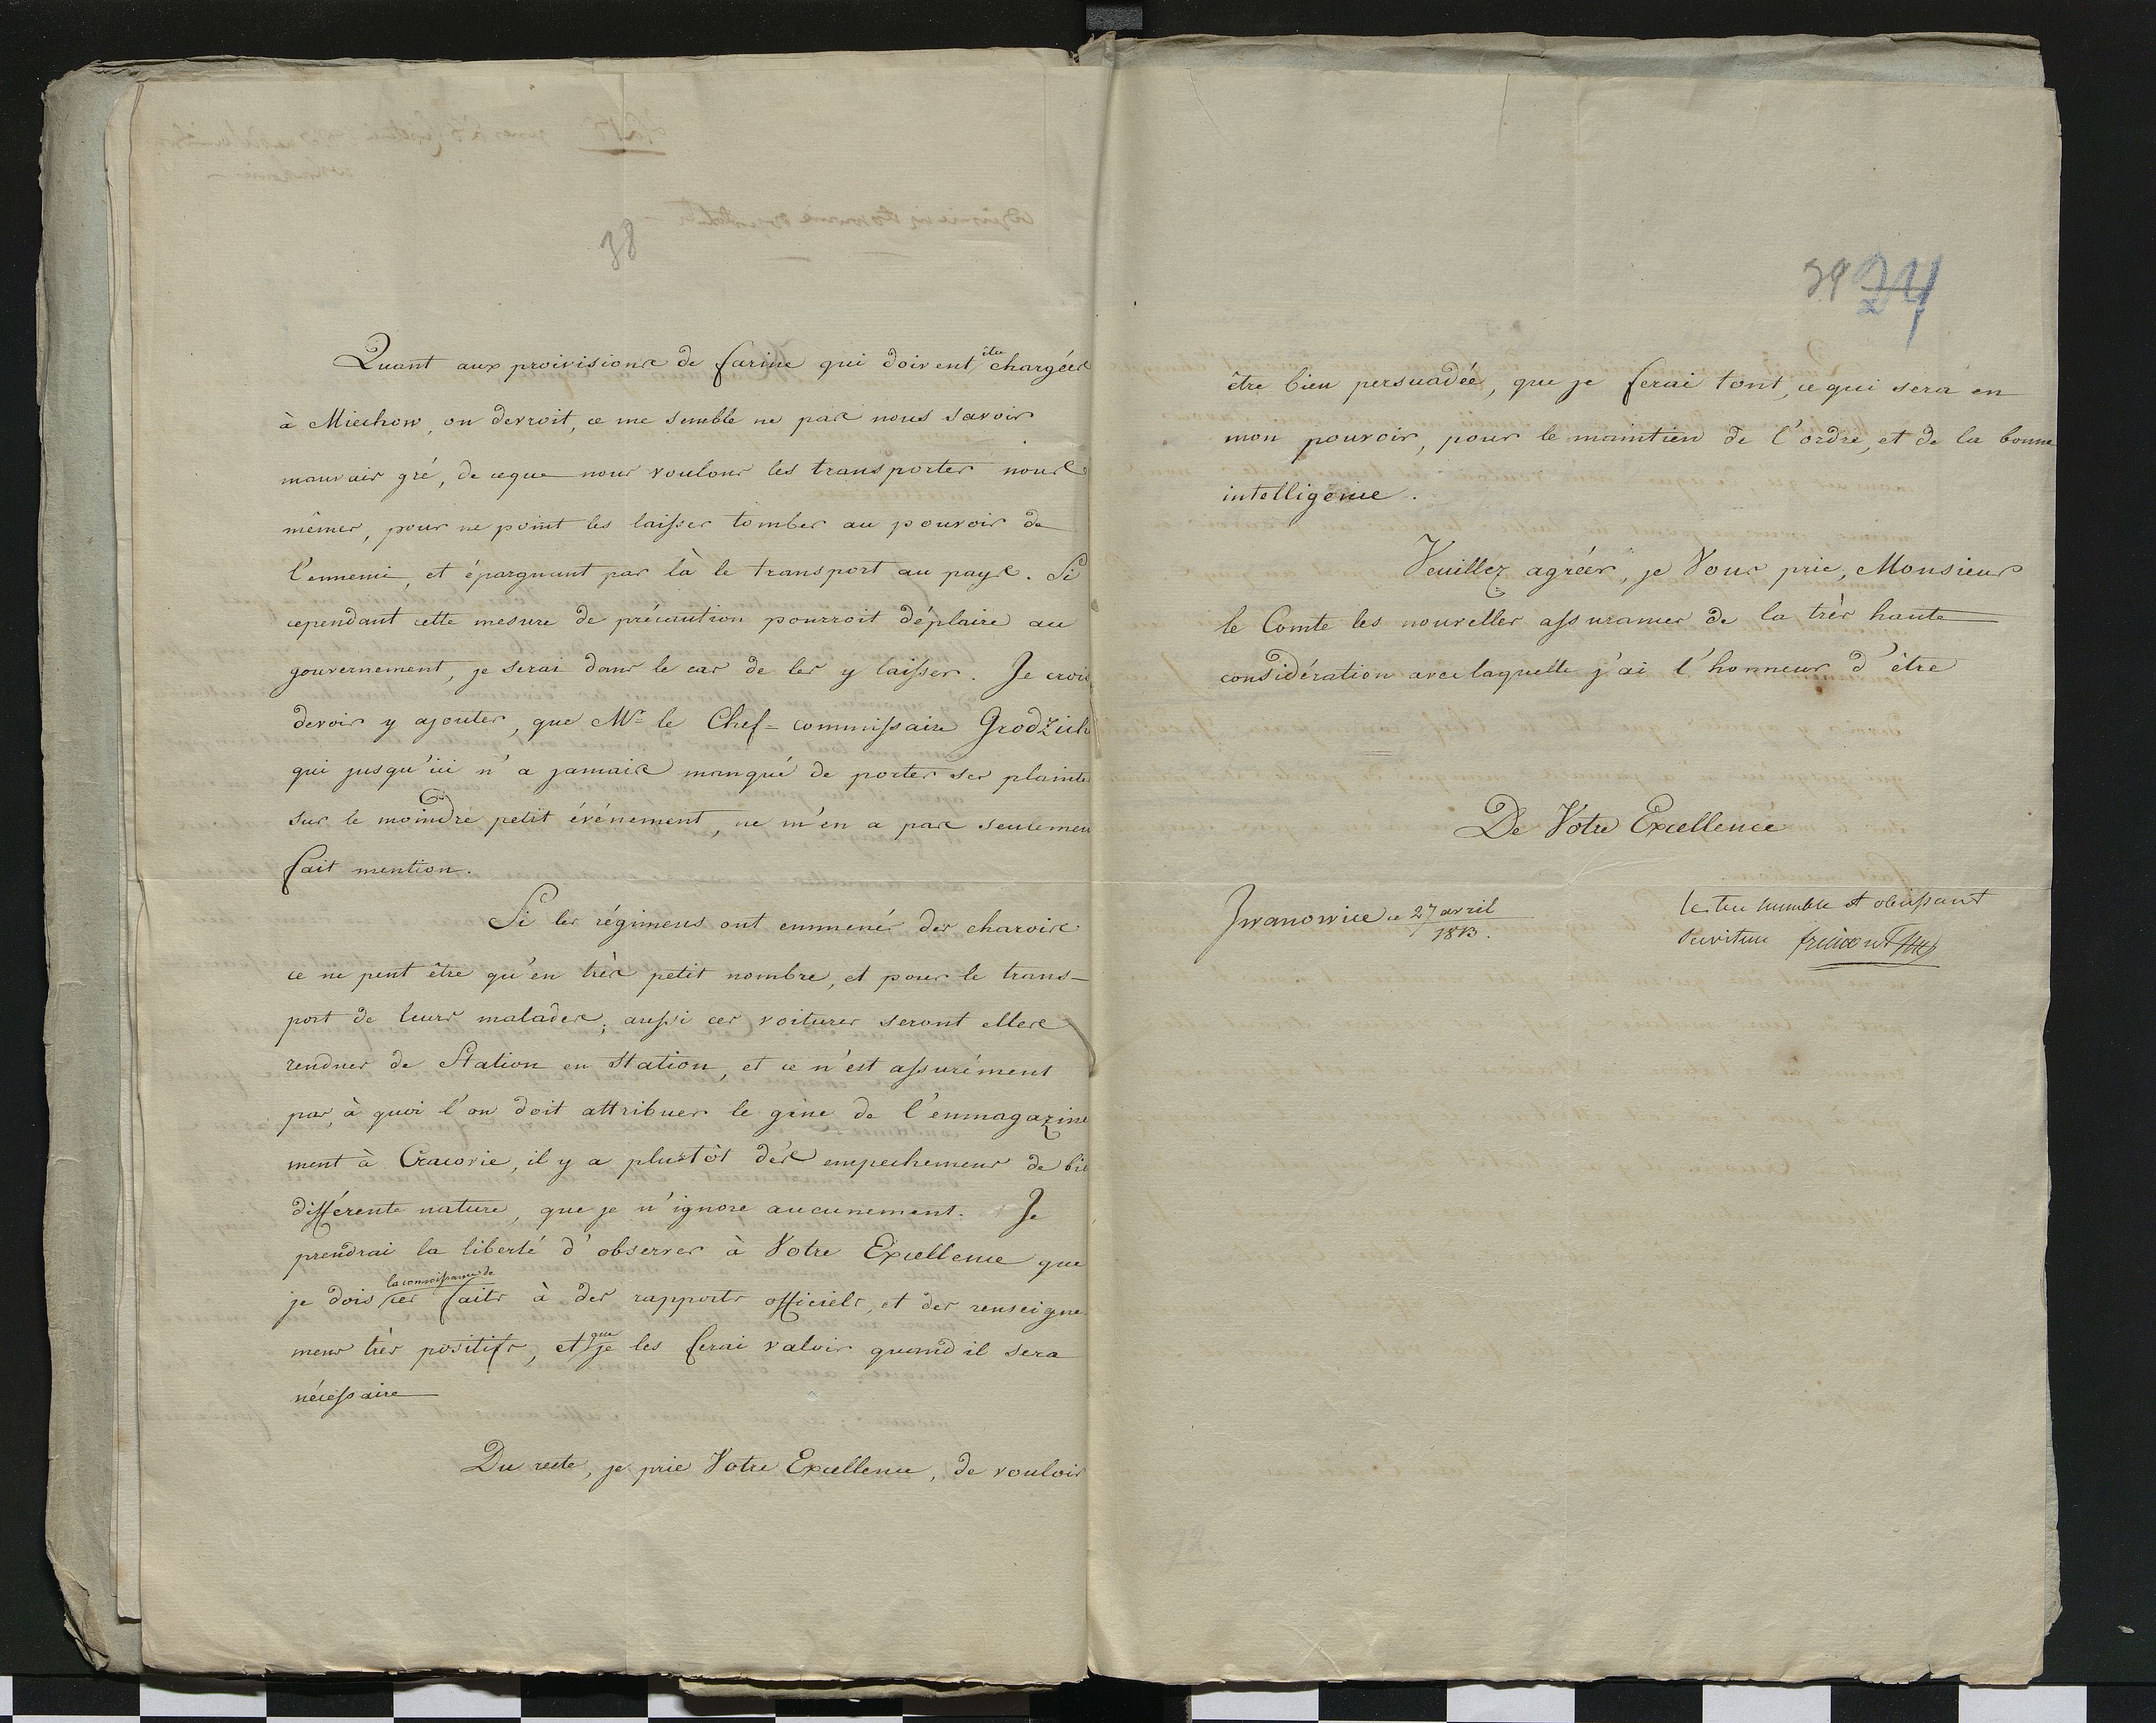 38
Quant aux proivisions de farine qui doivent être chargées
à Miechow, on devroit, ce me semble ne pas nous savoir
mauvais gré, de ceque nous voulons les transporter nous
mêmes, pour ne point les laisser tomber au pouvoir de
l'ennemi, et épargnant par là le transport au pays. Si
cependant cette mesure de précaution pourroit déplaire au
gouvernement, je serai dans le cas de les y laisser. Je crois
devoir y ajouter, que Mr le Chef-commissaire Grodzick
qui jusqu'ici n'a jamais manqué de porter ses plaintes
sur le moindre petit événement, ne m'en a pas seulemen
fait mention.
Si les régimens ont emmené des charois
ce ne peut être qu'en très petit nombre, et pour le trans-
port de leurs malades; aussi ces voitures seront elles
rendues de Station en Station, et ce n'est assurément
pas, à quoi l'on doit attribuer le gène de l'emmagazine
ment à Cracovie, il y a plustôt des empechemens de bie
différente nature, que je n'ignore aucunement. Je
prendrai la liberté d'observer à Votre Excellence que
je dois la connoissance de ces faits à des rapports officiels, et des renseigne
mens très positifs, et que je les ferai valoir quand il sera
nécessaire
Du reste, je prie Votre Excellence, de vouloir
39 24
être bien persuadée, que je ferai tout, ce qui sera en
mon pouvoir, pour le maintien de l'ordre, et de la bonne
intelligence.
Veuillez agréer, je Vous prie, Monsieur
le Comte les nouvelles assurances de la très haute
considération avec laquelle j'ai l'honneur d'être
De Votre Excellence
Iwanowice ce 27 avril
1813.
le très humble et obeissant
serviteur frimont